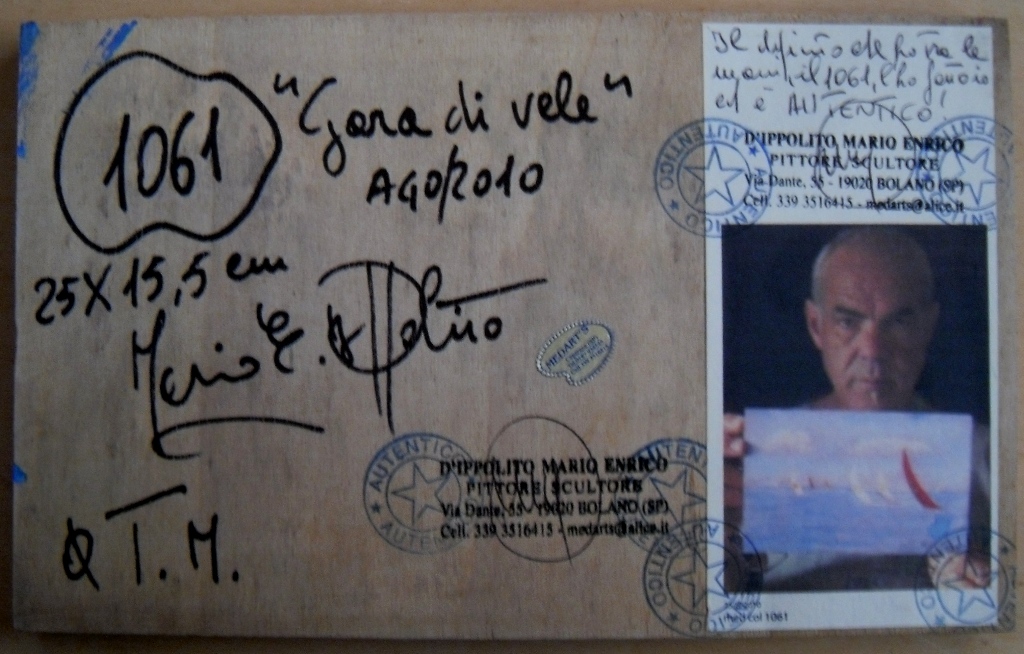 1061
"Gara di vele"
AGO/2010
25 X 15,5 cm
Mario E. D'Ippolito
T. M.
MEDART'S
AUTENTICO
D'IPPOLITO MARIO ENRICO
PITTORE SCULTORE
Via Dante, 55 - 19020 BOLANO (SP)
Cell. 339 3516415 - medarts@alice.it
AUTENTICO
Il dipinto che ho tra le
mani, il 1061, l'ho fatto io
ed è AUTENTICO!
AUTENTICO
D'IPPOLITO MARIO ENRICO
PITTORE SCULTORE
Via Dante, 55 - 19020 BOLANO (SP)
Cell. 339 3516415 - medarts@alice.it
AUTENTICO
AUTENTICO
AUTENTICO
col 1061